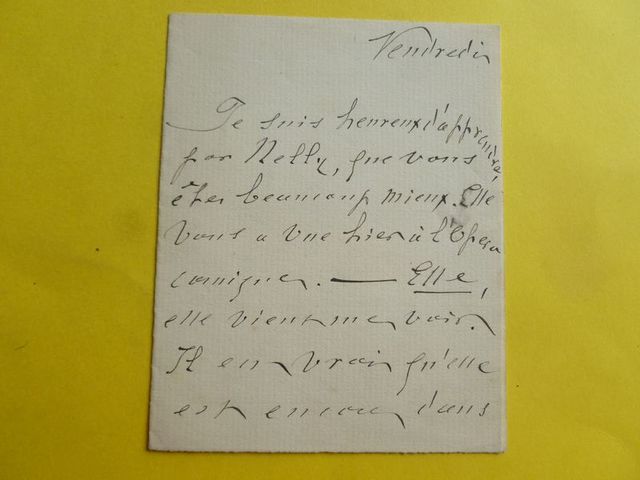 Vendredi
Je suis heureux d'apprendre,
par Nelly, que vous
êtes beaucoup mieux. Elle
vous a vue hier à l'Opéra
comique. — Elle,
elle vient me voir.
Il est vrai qu'elle
est encore dans